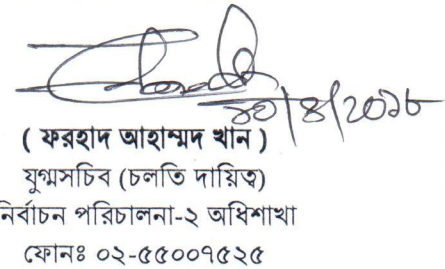 ৩০/৪/২০১৮
( ফরহাদ আহাম্মদ খান )
যুগ্মসচিব (চলতি দায়িত্ব)
নির্বাচন পরিচালনা-২ অধিশাখা
ফোনঃ ০২-৫৫০০৭৫২৫